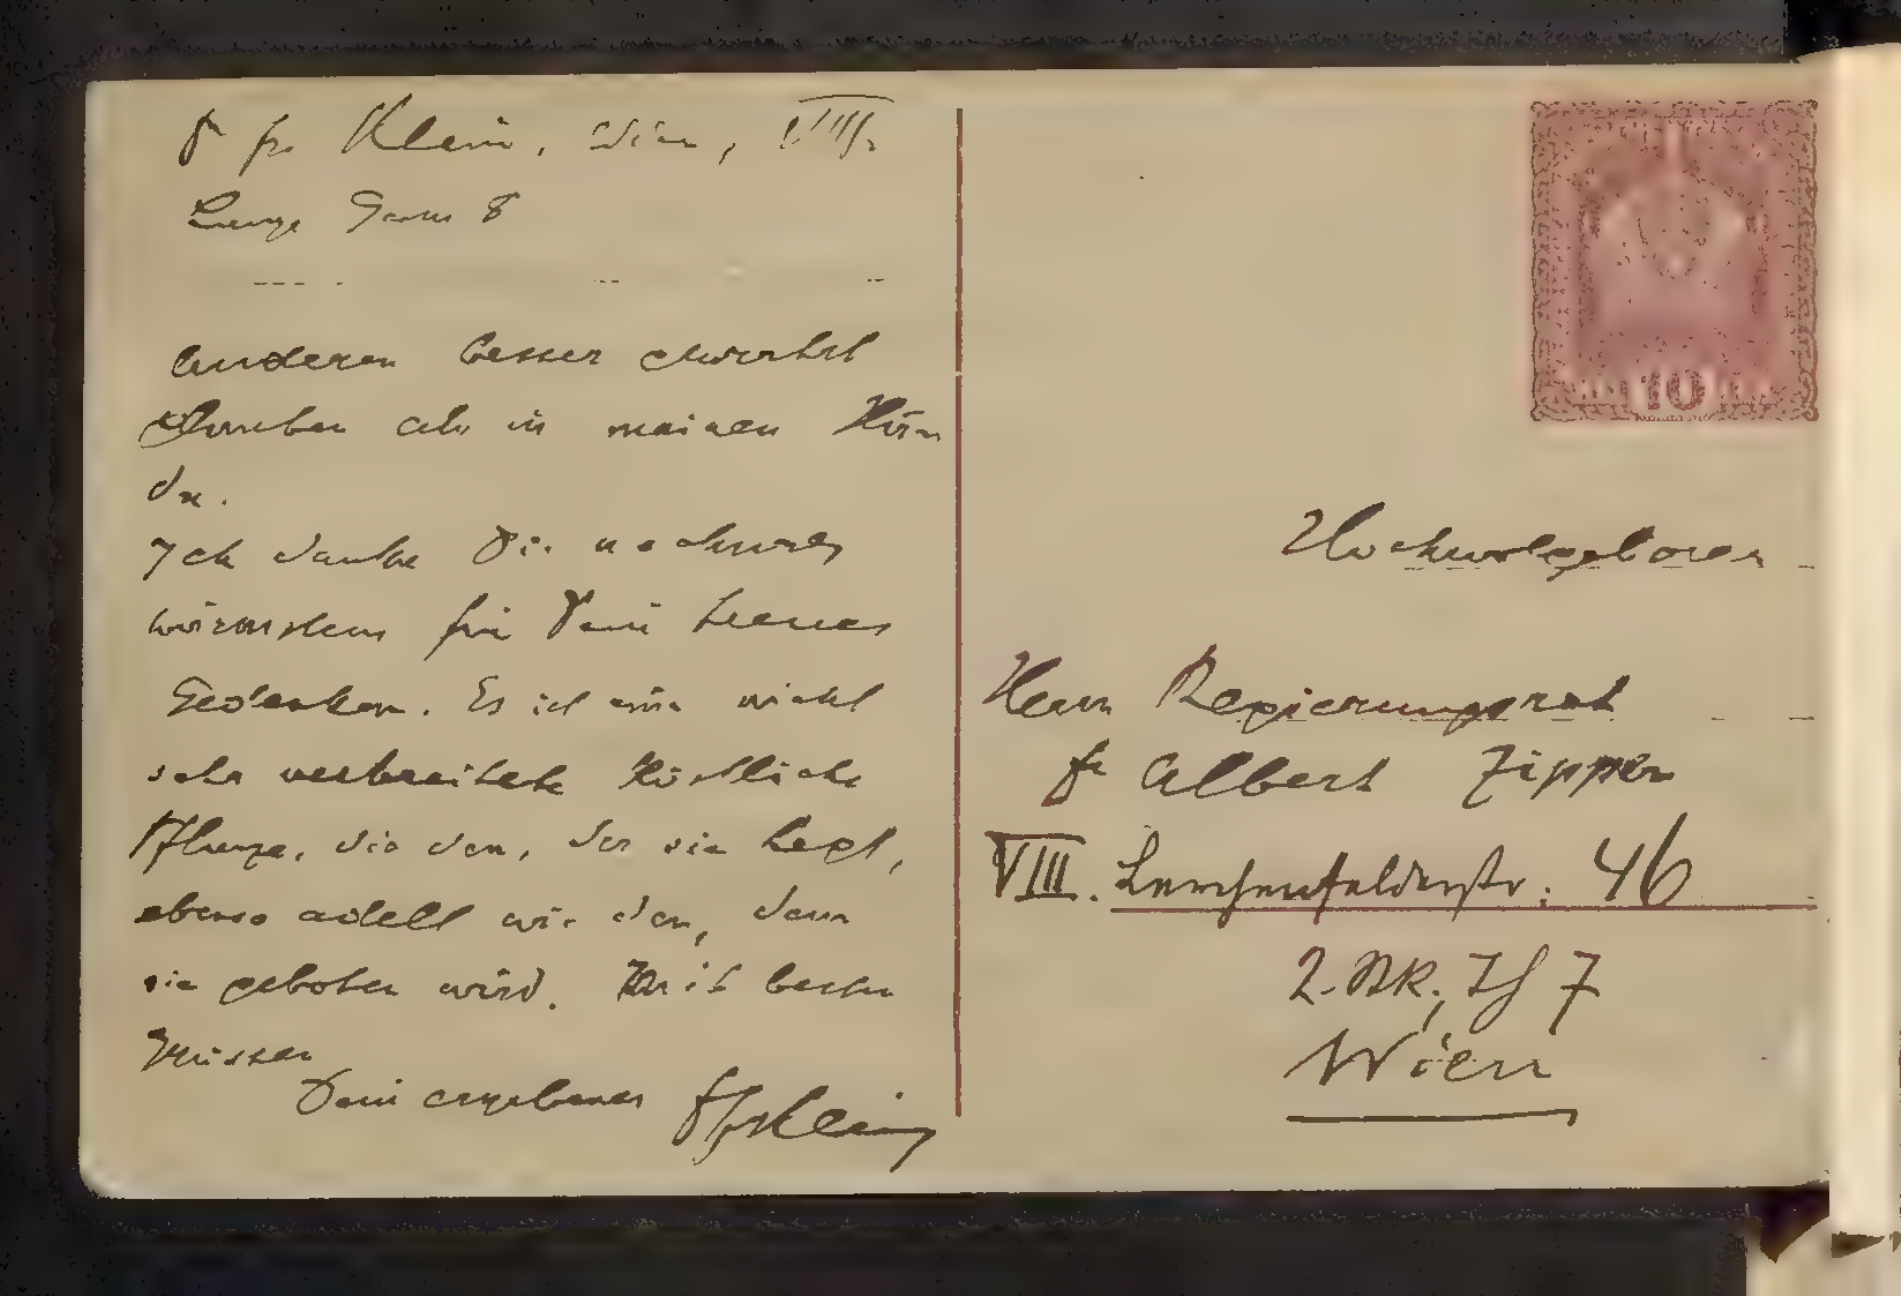 Klein, Wien, VIII/2
Lange Gasse 8
anderen besser
als in meinen Hän
den.
Ich danke Dir nochmals
wärmstens für Dein treues
Gedenken. Es ist eine nicht
sehr verbreitete köstliche
Pflanze, die den, der sie hegt,
ebenso adelt wie den, dem
sie geboten wird. Mit besten
Grüssen
Dein ergebener Klein
Hochwolgeboren
Herrn Regierungsrat
Dr Albert Zipper
VIII. Lerchenfelderstr: 46
2. Stk, Th 7
Wien
10